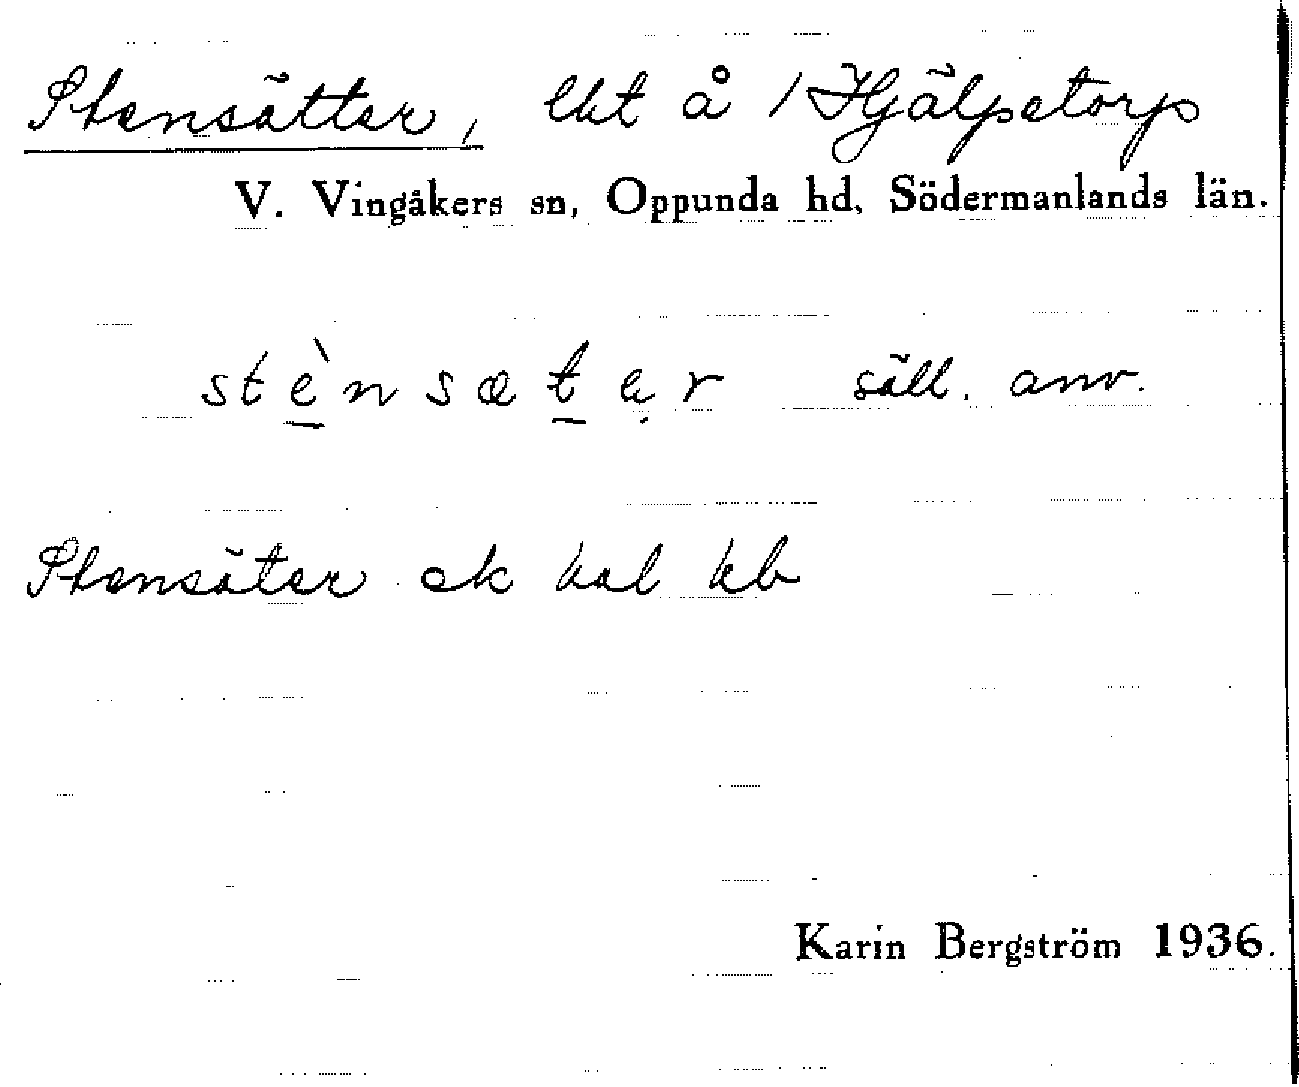 Stensätter, lht å 1 Hjälpetorp
V. Vingåkers sn, Oppunda hd, Södermanlands län.
stè̱nsæt̲ẹr säll. anv.
Stensäter ek hal kb
Karin Bergström 1936.